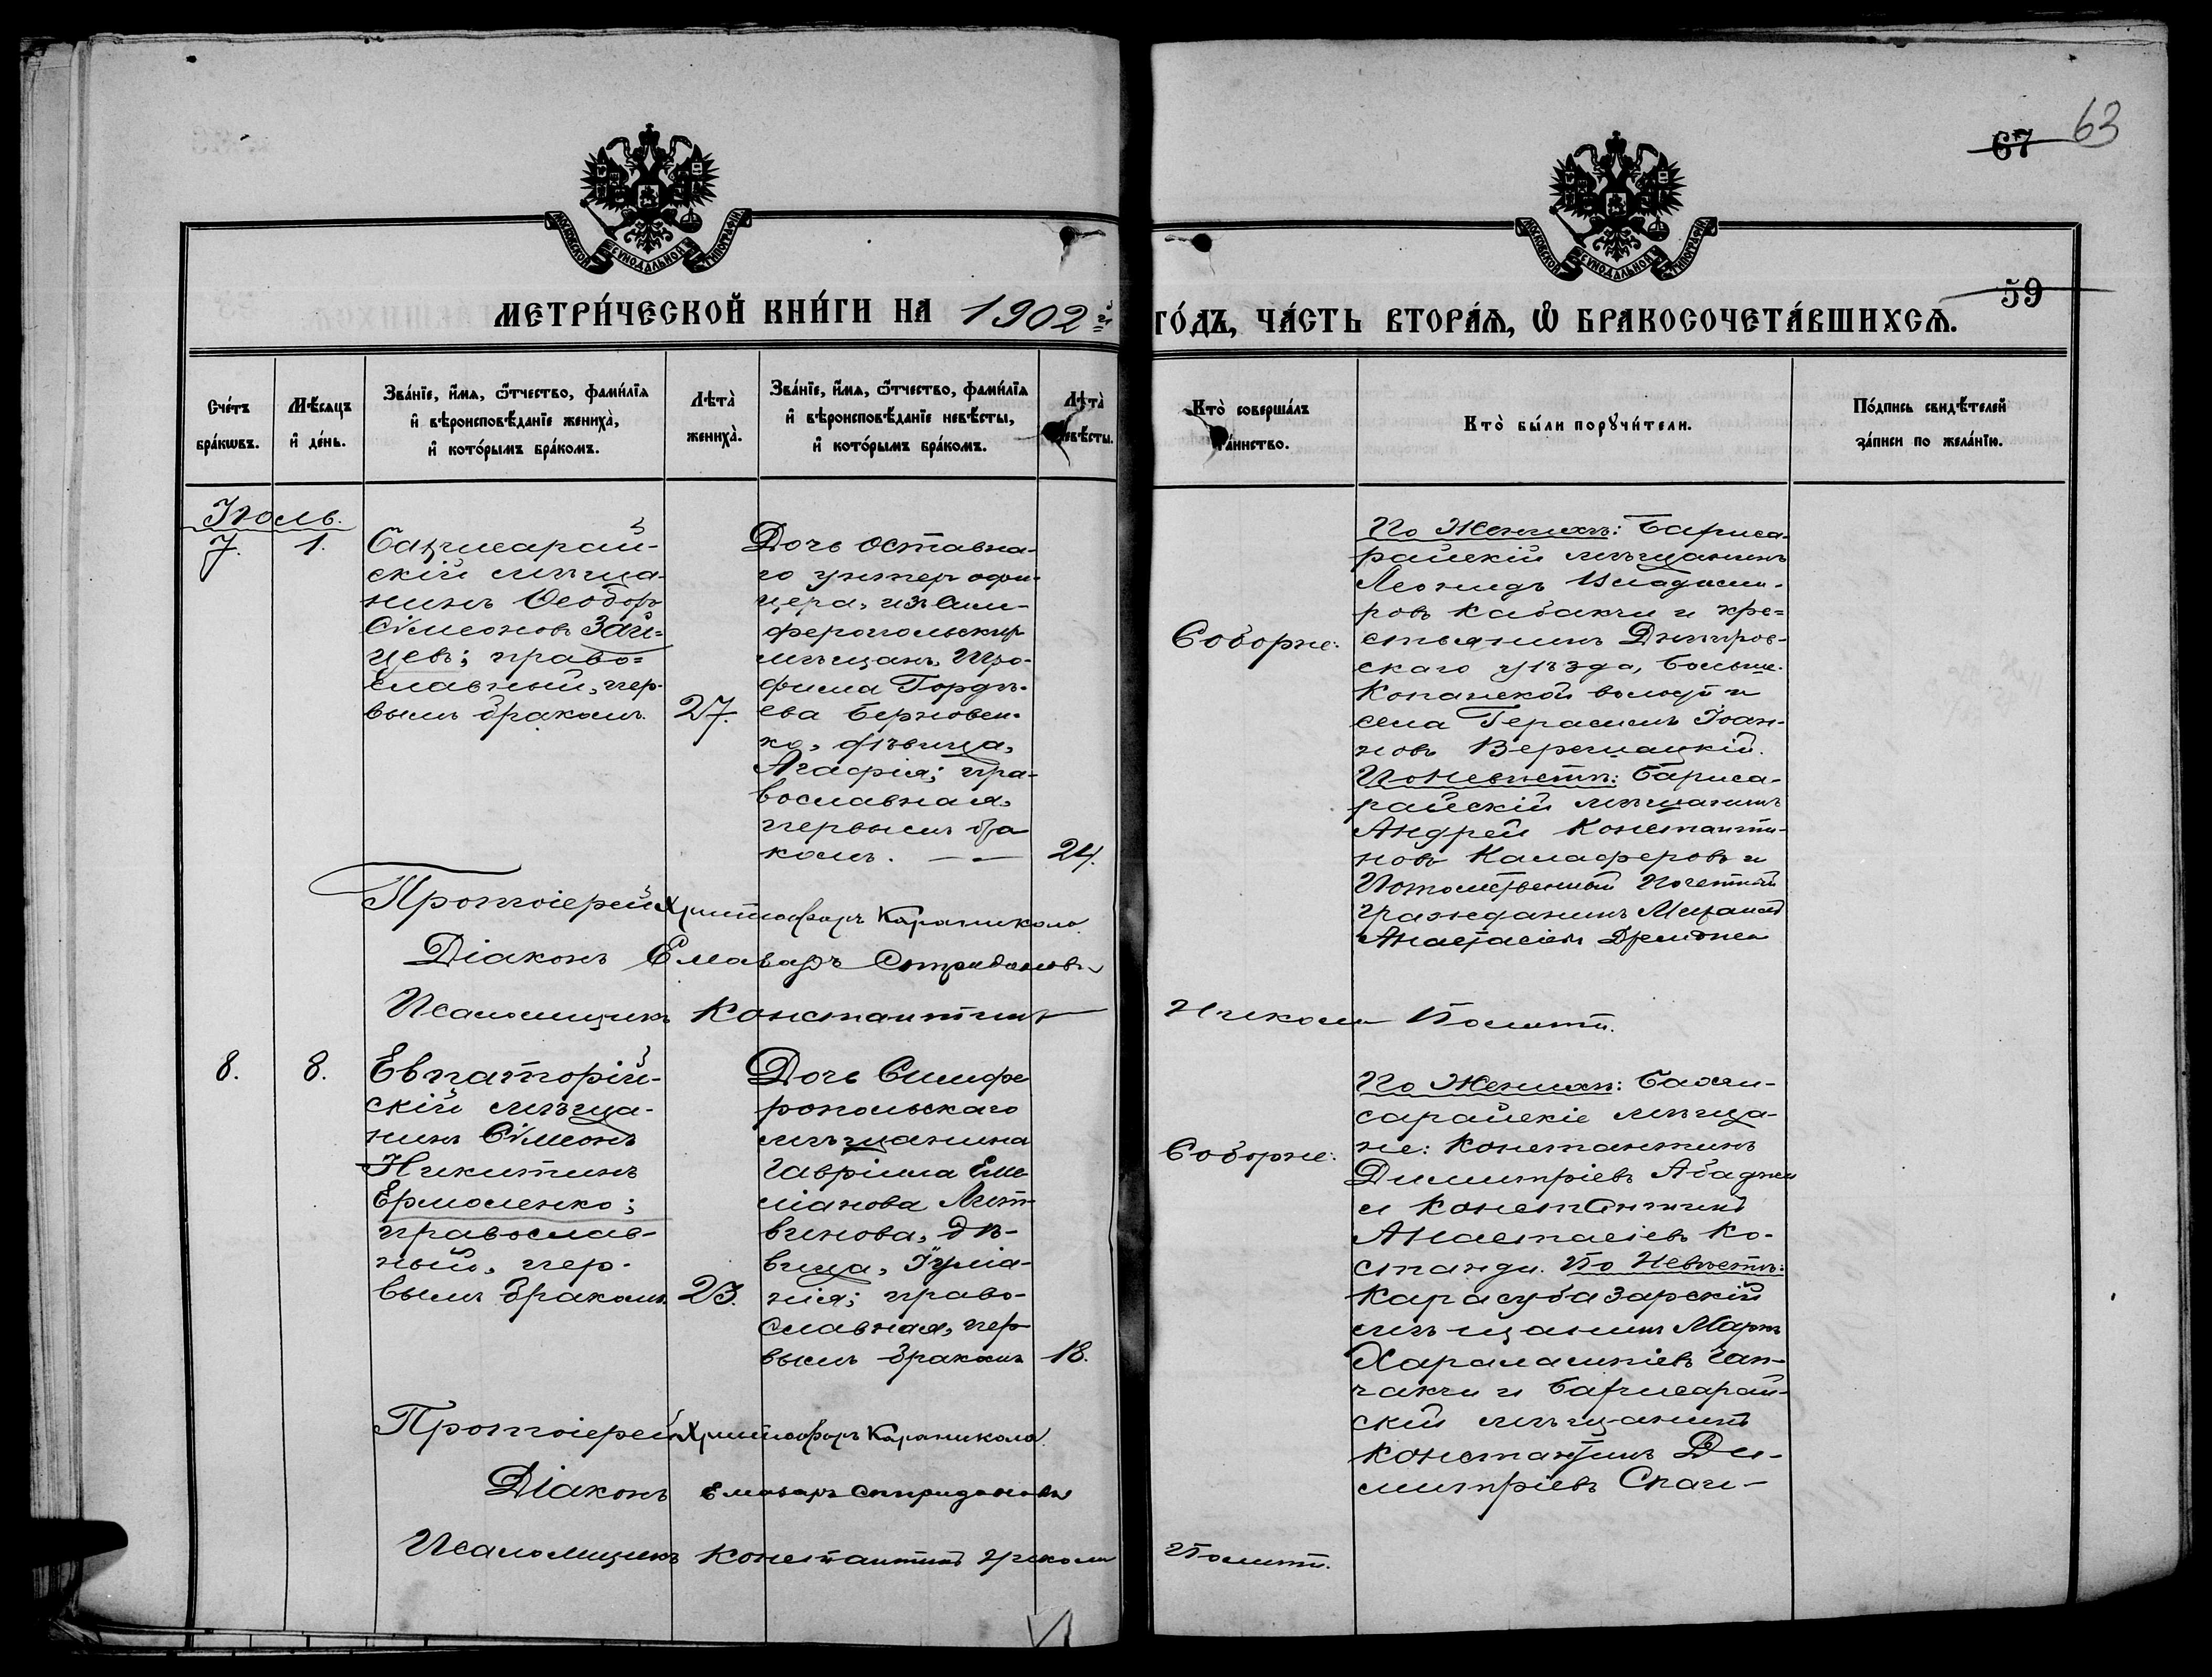 63
67
59
МОСКОВСКОЙ СѴНОДАЛЬНОЙ ТИПОГРАФІИ
МОСКОВСКОЙ СѴНОДАЛЬНОЙ ТИПОГРАФІИ
МЕТРИ́ЧЕСКОЙ КНИ́ГИ НА 1902 й
ГО́ДЪ, ЧА́СТЬ ВТОРА́Я, Ѡ БРАКОСОЧЕТА́ВШИХСЯ.
Сче́тъ
бра́кѡвъ.
Мѣ́сяцъ
и де́нь.
Зва́нїе, и́мя, ѻ́тчество, фами́лїя
и вѣроисповѣ́данїе жениха̀,
и кото́рымъ бра́комъ.
Лѣта̀
жениха̀.
Зва́нїе, и́мя, ѻ́тчество, фами́лїя
и вѣроисповѣ́данїе невѣ́сты,
и кото́рымъ бра́комъ.
Лѣта̀
невѣ́сты.
Кто̀ соверша́лъ
та́инство.
Кто̀ бы́ли порꙋчи́тели.
По́дпись свидѣ́телей
за́писи по жела́нїю.
Іюль.
7.
1.
Бахчисарай-
скій мѣща-
нинъ Ѳеодоръ
Сѵмеоновъ Зай-
цевъ; право-
славный, пер-
вымъ бракомъ.
27.
Дочь отставна-
го унтеръ офи-
цера, изъ Сим-
феропольскихъ
мѣщанъ, Тро-
фима Гордѣ-
ева Берновен-
ко, дѣвица,
Агафія; пра-
вославная,
первымъ бра
комъ. — —
24.
Соборне:
По Женихѣ: Бахчиса-
райскій мѣщанинъ
Леонидъ Владими-
ровъ Кабакчи и кре-
стьянинъ Днѣпров-
скаго уѣзда, Больше-
Копанской волости и
села Герасимъ Іоан-
новъ Верещацкій.
По Невѣстѣ: Бахчиса-
райскій мѣщанинъ
Андрей Константи-
новъ Калаферовъ и
Потомственный Почетный
гражданинъ Михаилъ
Анастасіевъ
Протоіерей Христофоръ Караникола.
Діаконъ Елеазаръ Спиридоновъ
Псаломщикъ Константинъ
Николаи Полити.
8.
8.
Евпаторій-
скій мѣща-
нинъ Сѵмеонъ
Никитинъ
Ермоленко;
православ-
ный, пер-
вымъ бракомъ.
23.
Дочь Симфе
ропольскаго
мѣщанина
Гавріила Еме
ліанова Лит-
винова, дѣ-
вица, Іуліа-
нія; право-
славная, пер
вымъ бракомъ
18.
Соборне:
По Женихѣ: Бахчи-
сарайскіе мѣща-
не: Константинъ
Димитріевъ Абаджи
и Константинъ
Анастасіевъ Ко-
станди. По Невѣстѣ:
Карасубазарскій
мѣщанинъ Маркъ
Харалампіевъ Ган-
чакчи и Бахчисарай-
скій мѣщанинъ
Константинъ Ди-
митріевъ Спаги-
Протоіерей Христофоръ Караникола.
Діаконъ Елеазаръ Спиридоновъ
Псаломщикъ Константинъ Николаи
Полити.